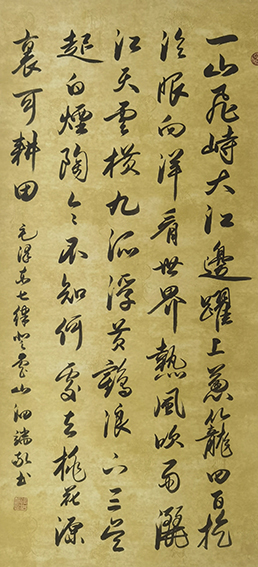 一山飛峙大江邊躍上葱籠四百旋
冷眼向洋看世界熱風吹雨灑
江天雲橫九派浮黃鶴浪下三吳
起白煙陶令不知何處去桃花源
裏可耕田
毛澤東七律登廬山 端敬書